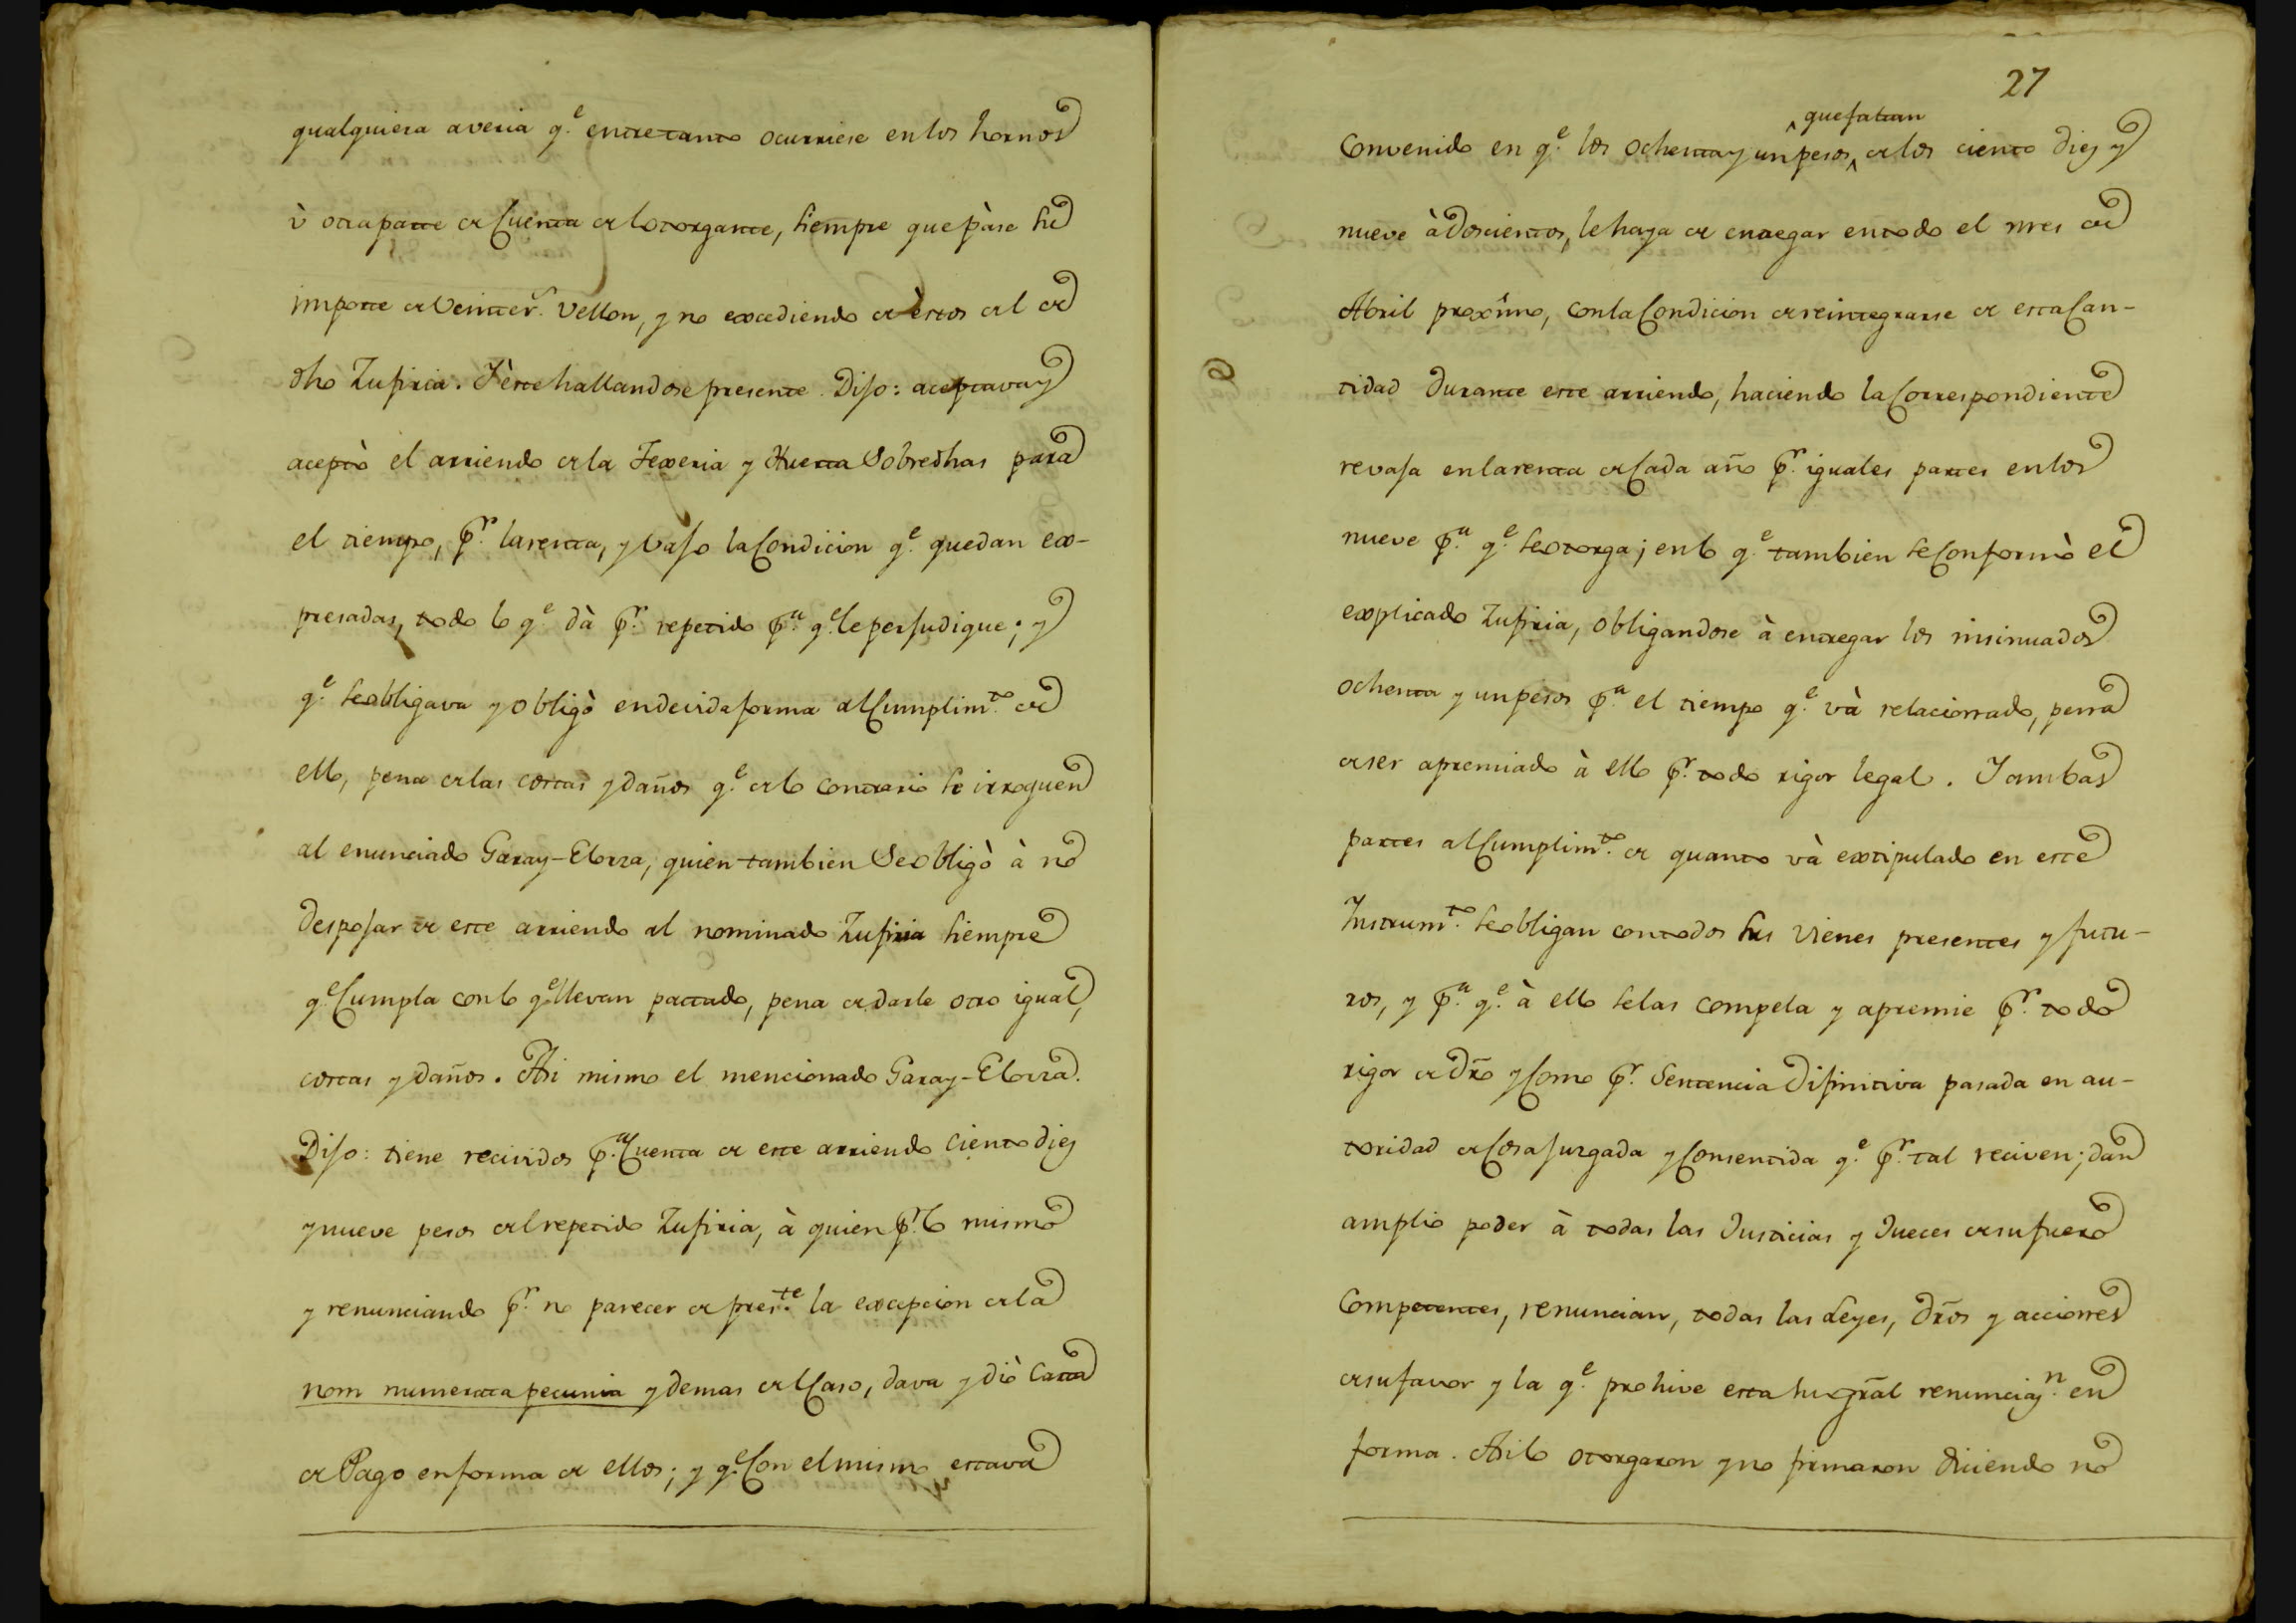 qualquiera averia q.e entretanto ocurriese en los hornos
ù otra parte de cuenta del otorgante, siempre que pàse su
importe de veinte r.s vellon, y no excediendo de èstos del de
dho Zufiria. Y èste hallandose presente. Dijo: aceptava y
aceptò el arriendo de la Texeria y Huerta sobredhas para
el tiempo, p.r la renta, y vajo la condicion q.e quedan ex-
presadas, todo lo q.e dà p.r repetido p.a q.e le perjudique; y
q.e se obligava y obligò en devida forma al cumplim.to de
ello, pena de las costas y daños q.e de lo contrario se irroguen
al enunciado Garay-Elorza, quien tambien se obligò à no
despojar de este arriendo al nominado Zufiria siempre
q.e cumpla con lo q.e llevan pactado, pena de darle otro igual,
costas y daños. Asi mismo el mencionado Garay-Elorza.
Dijo: tiene recividos p.a cuenta de este arriendo ciento diez
y nueve pesos del repetido Zufiria, à quien p.r lo mismo
y renunciando p.r no parecer de pres.te la excepcion de la
nom numerata pecunia y demas del caso, dava y diò carta
de Pago en forma de ellos; y q.e con el mismo estava
27
que faltan
Convenido en q.e los ochenta y un pesos ^ de los ciento diez y
nueve à doscientos, le haya de entregar en todo el mes de
Abril proximo, con la condicion de reintegrarse de esta can-
tidad durante este arriendo, haciendo la correspondiente
revaja en la renta de cada año p.r iguales partes en los
nueve p.a q.e se otorga; en lo q.e tambien se conformò el
explicado Zufiria, obligandose à entregar los insinuados
ochenta y un pesos p.a el tiempo q.e và relacionado, pena
de ser apremiado à ello p.r todo rigor legal. Y ambas
partes al cumplim.to de quanto và extipulado en este
Instrum.to se obligan con todos sus vienes presentes y futu-
ros, y p.a q.e à ello se las compela y apremie p.r todo
rigor de dro y como p.r sentencia difinitiva pasada en au-
toridad de cosa juzgada y consentida q.e p.r tal reciven; dan
amplio poder à todas las Justicias y Jueces de su fuero
competentes, renuncian, todas las Leyes, dros y acciones
de su favor y la q.e prohive esta su gral renunciaz.n en
forma. Asi lo otorgaron y no firmaron diciendo no